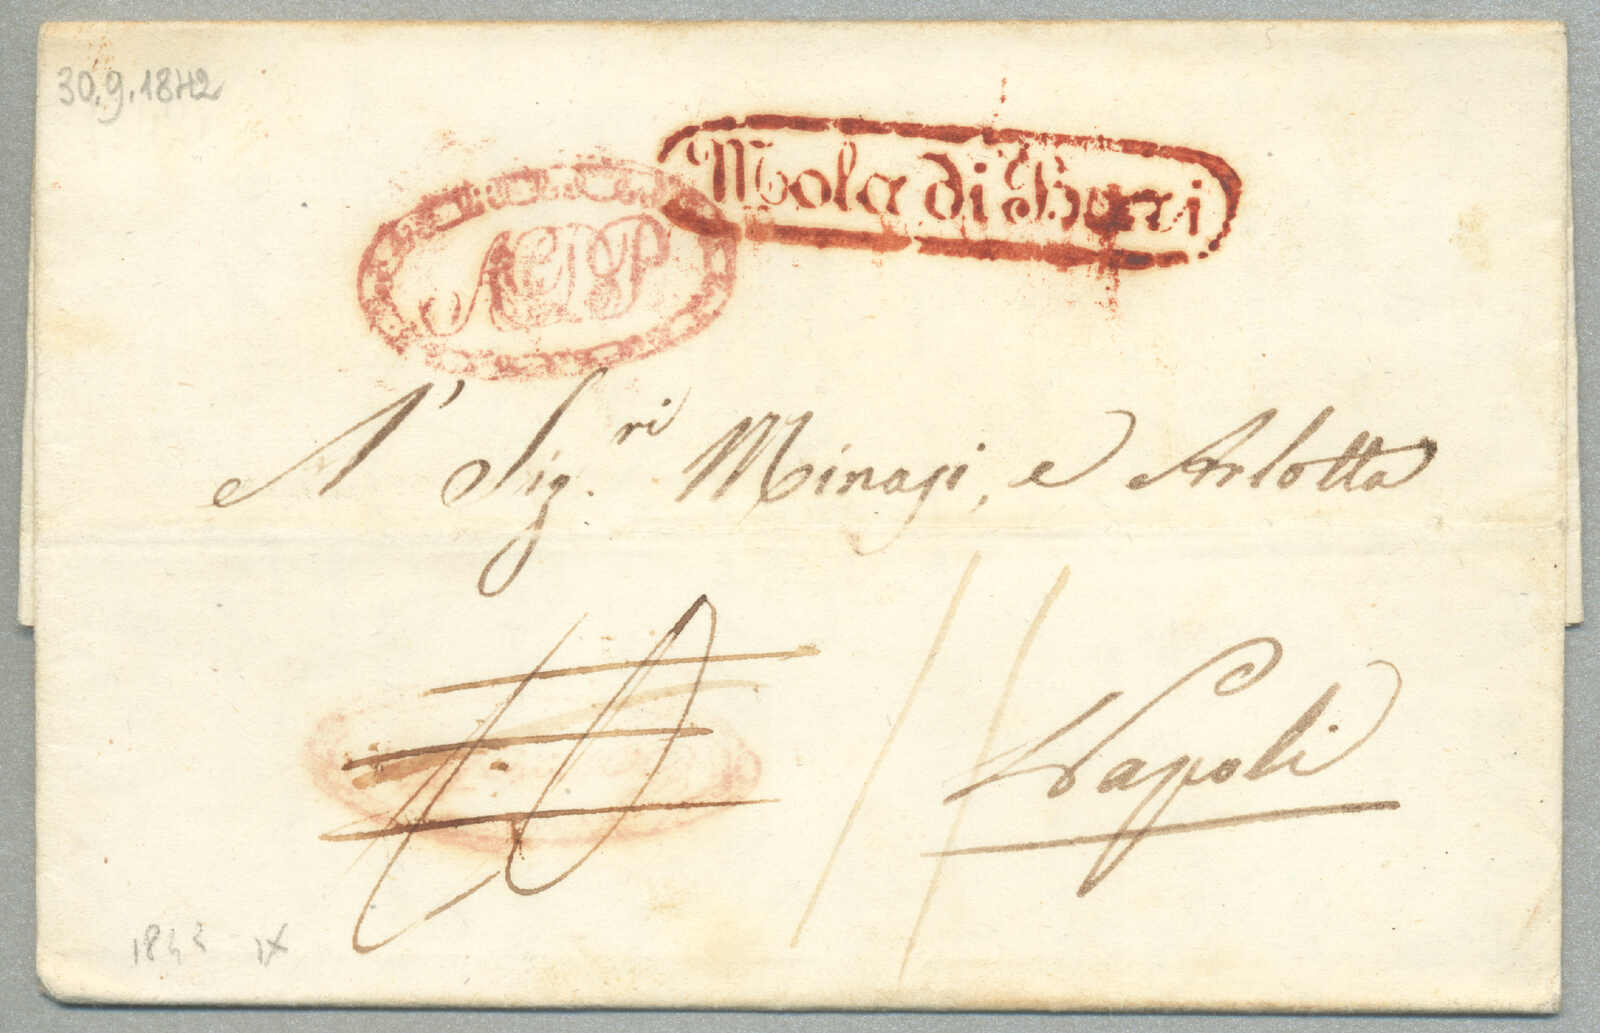 30.9.1842
Mola di Bari
AGDP
A' Sig.ri Minasi, e Arlotta
Napoli
IX